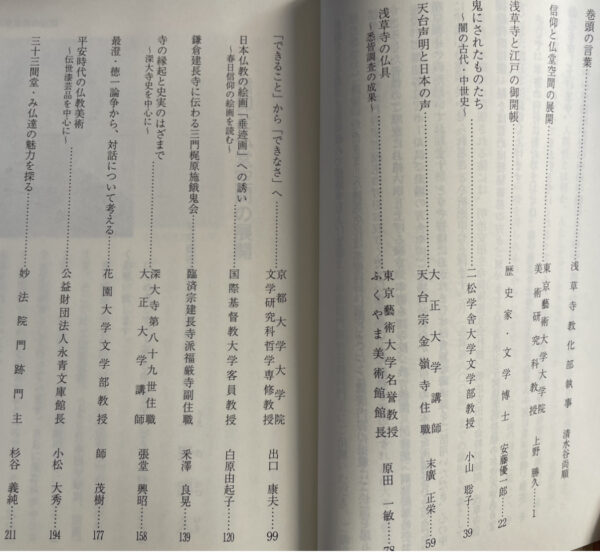 巻頭の言葉 浅草寺教化部執事 清水谷尚順
信仰と仏堂空間の展開 東京藝術大学大学院 美術研究科教授 上野 勝久 1
浅草寺と江戸の御開帳 歴史家・文学博士 安藤優一郎 22
鬼にされたものたち
~闇の古代・中世史~ 二松学舎大学文学部教授 小山 聡子 39
天台声明と日本の声 大正大学講師 天台宗金嶺寺住職 末廣 正栄 59
浅草寺の仏具
~悉皆調査の成果~ 東京藝術大学名誉教授 ふくやま美術館館長 原田 一敏 78
「できること」から「できなさ」へ 京都大学大学院 文学研究科哲学専修教授 出口 康夫 99
日本仏教の絵画「垂迹画」への誘い
~春日信仰の絵画を読む~ 国際基督教大学客員教授 白原由起子 120
鎌倉建長寺に伝わる三門梶原施餓鬼会 臨済宗建長寺派福厳寺副住職 釆澤 良晃 139
寺の縁起と史実のはざまで
~深大寺史を中心に~ 深大寺第八十九世住職 大正大学講師 張堂 興昭 158
最澄・徳一論争から、対話について考える 花園大学文学部教授 師 茂樹 177
平安時代の仏教美術
~伝世漆芸品を中心に~ 公益財団法人永青文庫館長 小松 大秀 194
三十三間堂・み仏達の魅力を探る 妙法院門跡門主 杉谷 義純 211